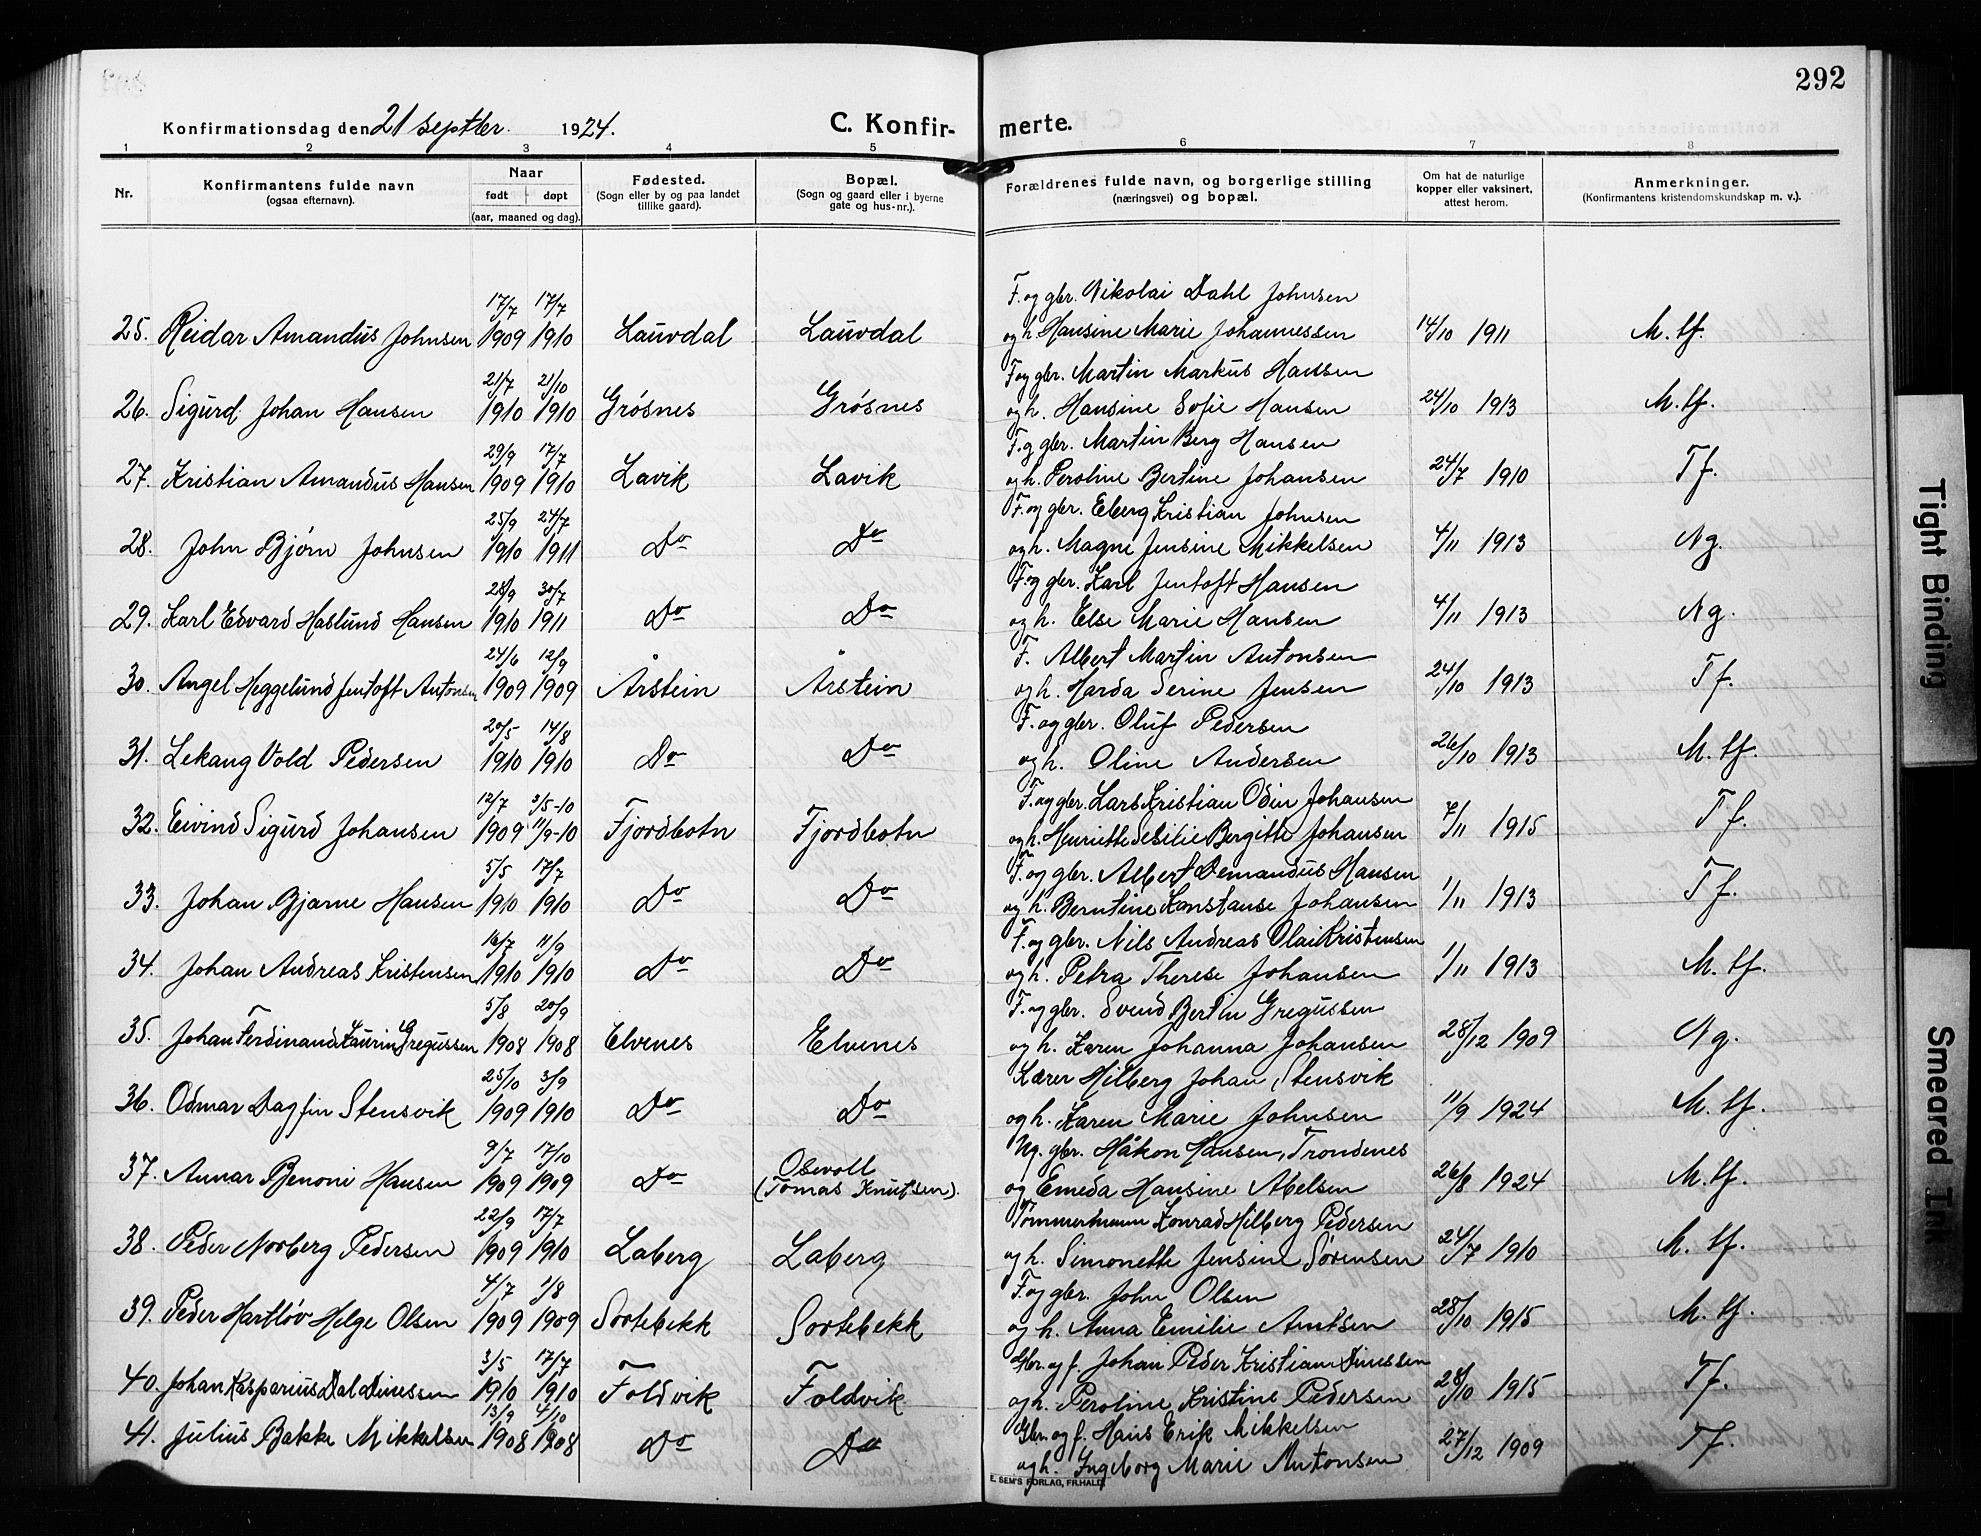 292
Konfirmationsdag den 21 septbr. 1924.
C. Konfirmerte.
1 2 3 4 5 6 7 8
Nr.
Konfirmantens fulde navn
(ogsaa efternavn).
Naar
født døpt
(aar, maaned og dag).
Fødested.
(Sogn eller by og paa landet
tillike gaard).
Bopæl.
(Sogn og gaard eller i byerne
gate og hus-nr.).
Forældrenes fulde navn, og borgerlige stilling
(næringsvei) og bopæl.
Om hat de naturlige
kopper eller vaksinert,
attest herom.
Anmerkninger.
(Konfirmantens kristendomskundskap m. v.).
17/7 17/7 F. og gbr. Nikolai Dahl Johnsen
25. Reidar Amandus Johnsen 1909 1910 Lauvdal Lauvdal og h. Hansine Marie Johannessen 14/10 1911 M. tf.
21/7 21/10 F og gbr. Martin Markus Hansen
26. Sigurd Johan Hansen 1910 1910 Grøsnes Grøsnes og h. Hansine Sofie Hansen 24/10 1913 M. tf.
29/9 17/7 F. g gbr. Martin Berg Hansen
27. Kristian Amandus Hansen 1909 1910 Lavik Lavik og h. Peroline Bertine Johansen 24/7 1910 Tf.
25/9 24/7 F. og gbr. Eberg Kristian Johnsen
28. John Bjørn Johnsen 1910 1911 Do Do og h. Magne Jensine Mikkelsen 4/11 1913 Ng.
28/9 30/7 F. og gbr. Karl Jentoft Hansen
29. Karl Edvard Haslund Hansen 1910 1911 Do Do og h. Else Marie Hansen 4/11 1913 Ng.
24/6 12/9 F. Albert Martin Antonsen
30. Angel Heggelund Jentoft Antonsen 1909 1909 Årstein Årstein og h. Harda Serine Jensen 24/10 1913 Tf.
20/5 14/8 F. og gbr. Oluf Pedersen
31. Lekang Vold Pedersen 1910 1910 Do Do og h. Oline Andersen 26/10 1913 M. tf.
12/7 3/5-10 F. og gbr. Lars Kristian Odin Johansen
32. Eivind Sigurd Johansen 1909 11/9-10 Fjordbotn Fjordbotn og h. Henriette Sesilie Bergitte Johansen 7/11 1915 Tf.
5/5 17/7 F. og gbr. Albert Demandus Hansen
33. Johan Bjarne Hansen 1910 1910 Do Do og h. Berntine Konstanse Johansen 1/11 1913 Tf.
16/7 11/9 F. og gbr. Nils Andreas Olai Kristensen
34. Johan Andreas Kristensen 1910 1910 Do Do og h. Petra Therese Johansen 1/11 1913 M. tf.
5/8 20/9 F. og gbr. Svend Bertin Gregussen
35. Johan Ferdinand Laurin Gregussen 1908 1908 Elvenes Elvenes og h. Karen Johanna Johansen 28/12 1909 Ng.
25/10 3/9 Kærer Hilberg Johan Stensvik
36. Odmar Dagfin Stensvik 1909 1910 Do Do og h. Karen Marie Johnsen 11/9 1924 M. tf.
9/7 17/10 Ug. gbr. Håkon Hansen, Trondenes
37. Annar Benoni Hansen 1909 1909 Do Osevoll (Tomas Knutsen). og Emeda Hansine Abelsen 26/8 1924 M. tf.
22/9 17/7 Tømmermann Konrad Hilberg Pedersen
38. Peder Norberg Pedersen 1909 1910 Laberg Laberg og h. Simonette Jensine Sørensen 24/7 1910 M. tf.
4/7 1/8 F. og gbr. John Olsen
39. Peder Hartløv Helge Olsen 1909 1909 Sortebekk Sortebekk og h. Anna Emilie Arntsen 28/10 1915 M. tf.
3/5 17/7 Gbr. og f. Johan Peder Kristian Dinessen
40. Johan Kasparius Dal Dinessen 1910 1910 Foldvik Foldvik og h. Peroline Kristine Pedersen 28/10 1915 Tf.
13/9 4/10 Gbr. og f. Hans Erik Mikkelsen
41. Julius Bakke Mikkelsen 1908 1908 Do Do og h. Ingeborg Marie Antonsen 27/12 1909 Tf.
E. SEM'S FORLAG, FR.HALD
Tight Binding
Smeared Ink